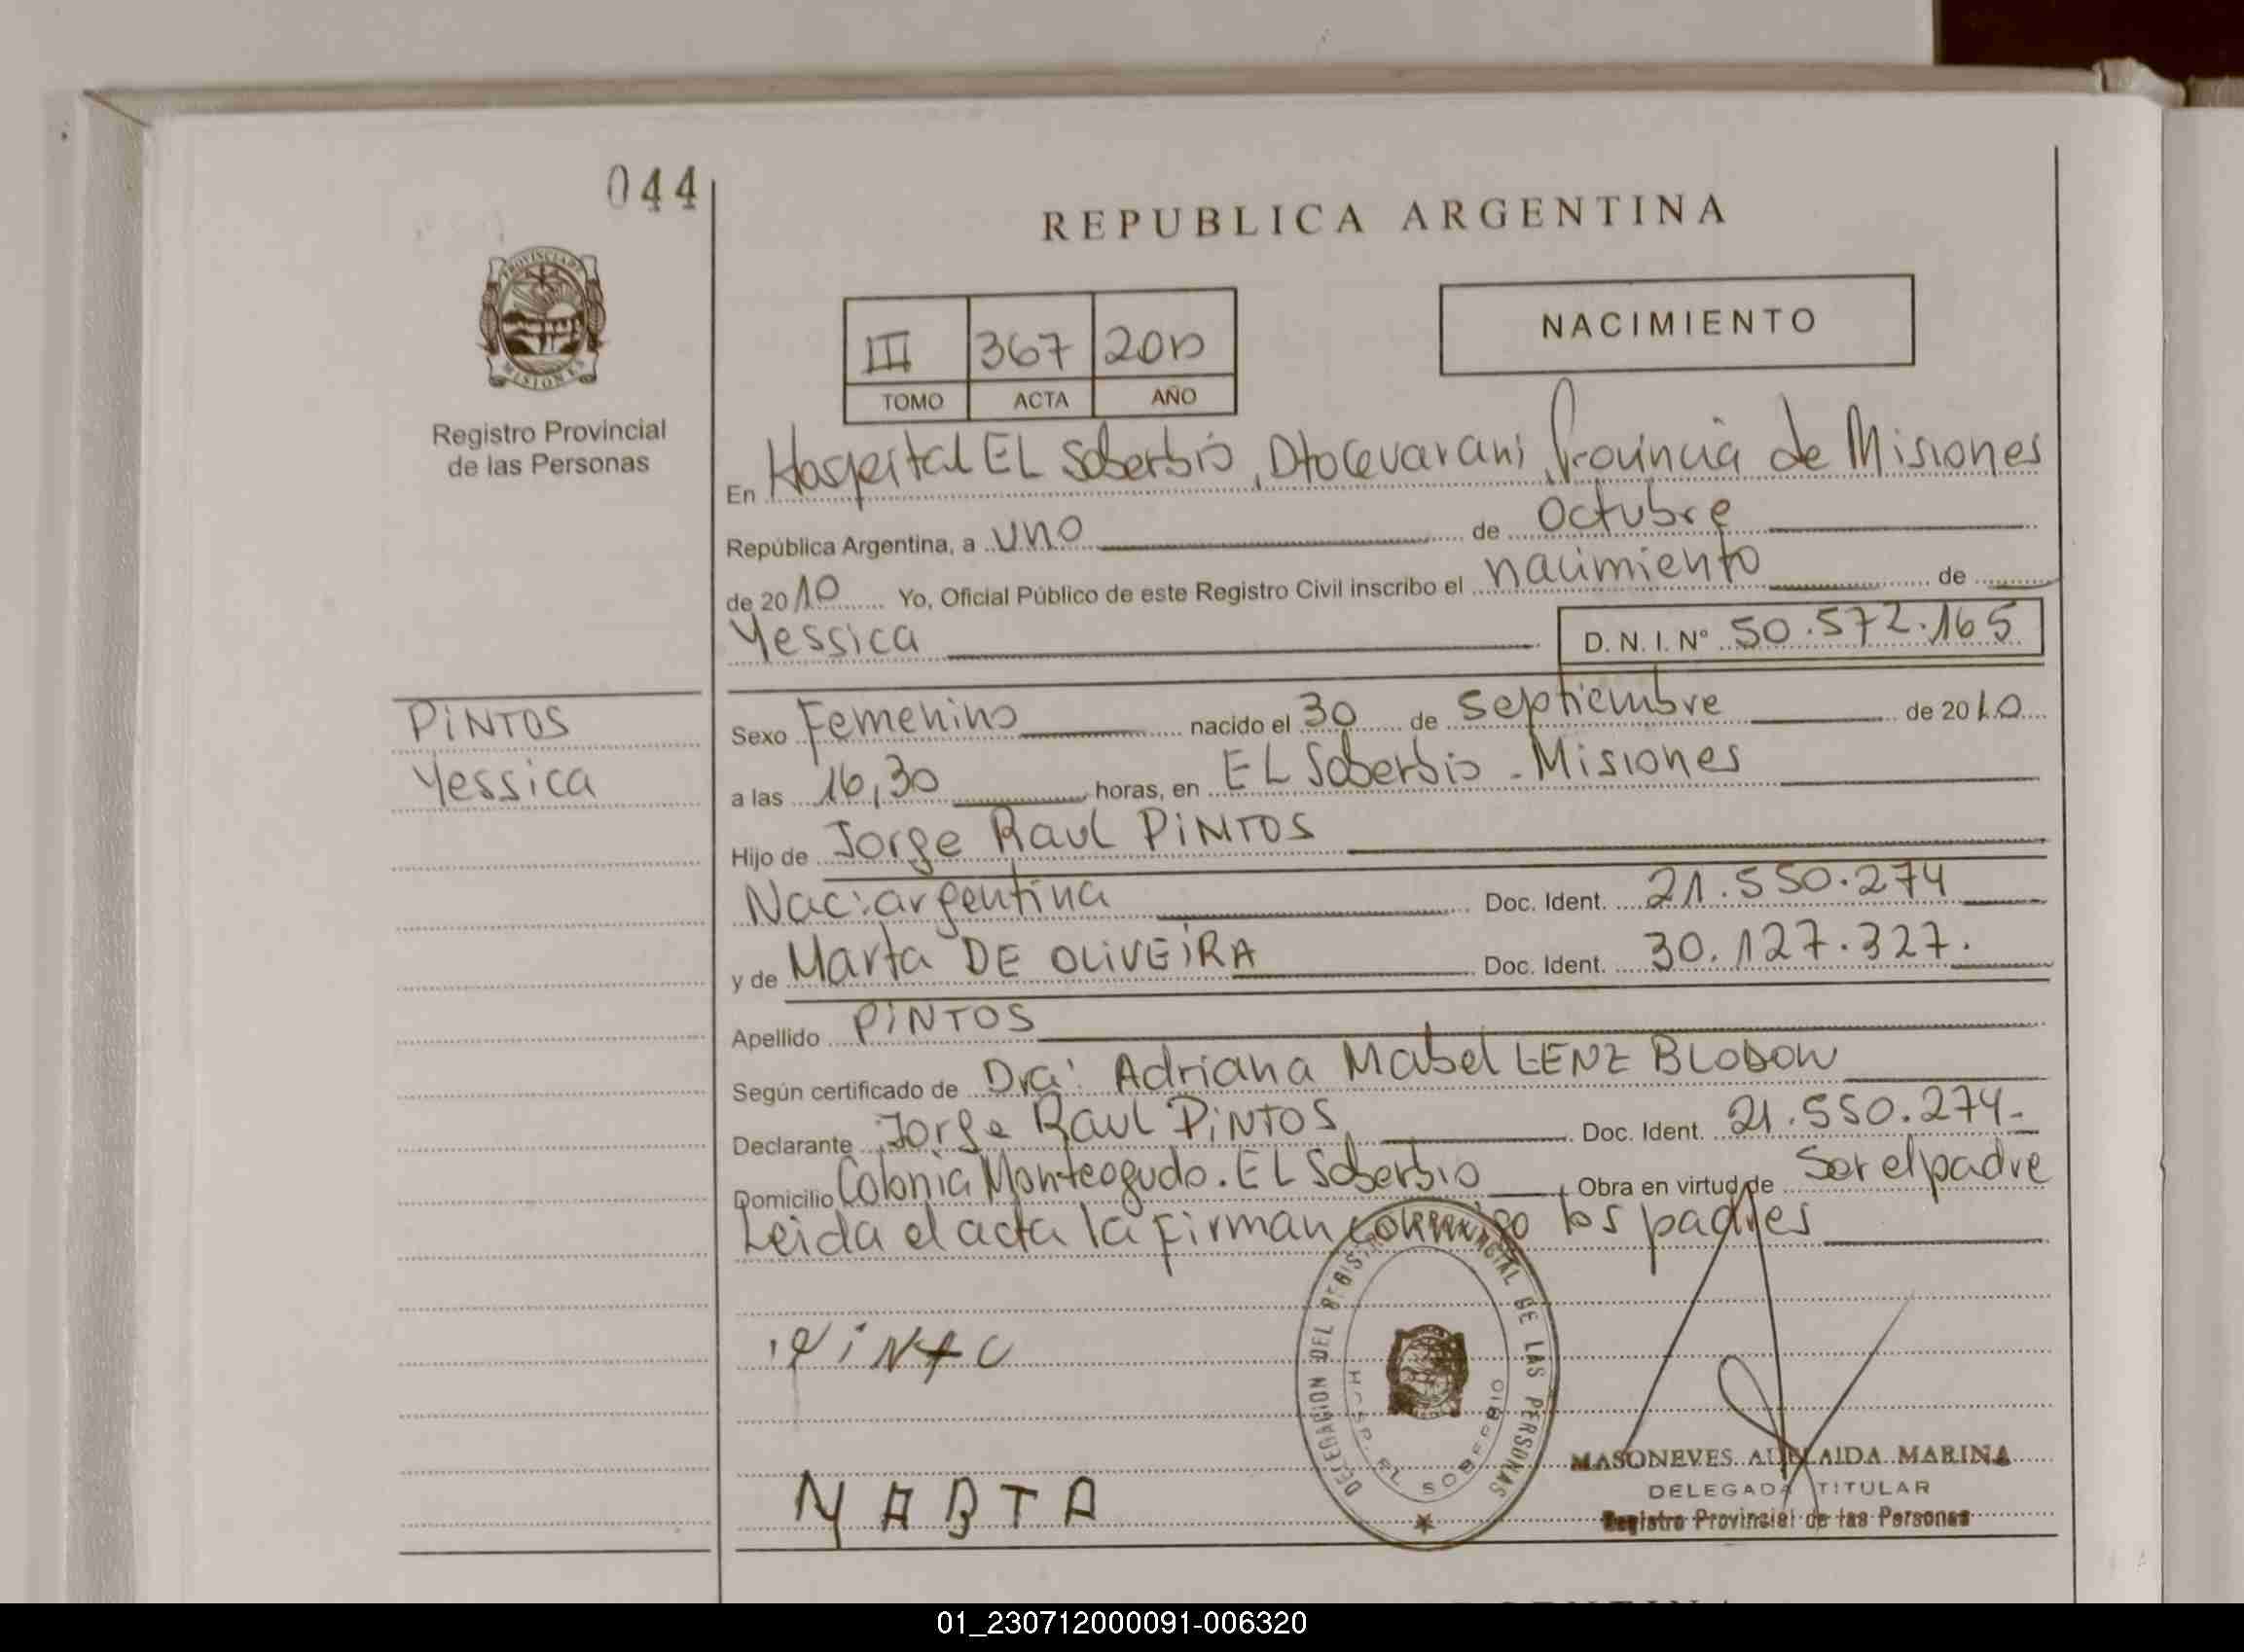 044
REPUBLICA ARGENTINA
PROVINCIA DE
MISIONES
Registro Provincial
de las Personas
NACIMIENTO
III 367 2010
TOMO ACTA AÑO
En Hospital EL Soberbio, Dto Guarani Provincia de Misiones
República Argentina, a uno de Octubre
de 2010 Yo, Oficial Público de este Registro Civil inscribo el nacimiento de
Yessica D. N. I. Nº 50.572.165
PiNTOS
Yessica
Sexo Femenino nacido el 30 de Septiembre de 2010
a las 16,30 horas, en EL Soberbio - Misiones
Hijo de Jorge Raul PiNTOS
Nac: argentina Doc. Ident. 21.550.274
y de Marta DE OLiVEiRA Doc. Ident. 30.127.327.
Apellido PiNTOS
Según certificado de Dra: Adriana Mabel LENZ BLODOW
Declarante Jorge Raul PiNTOS Doc. Ident. 21.550.274-
Domicilio Colonia Monteagudo. EL Soberbio Obra en virtud de Ser el padre
Leida el acta la firman conmigo los padres
DELEGACION DEL REGISTRO PROVINCIAL DE LAS PERSONAS
HOSP. EL SOBERBIO
MARTA
MASONEVES ADELAIDA MARINA
DELEGADA TITULAR
Registro Provincial de las Personas
01_230712000091-006320